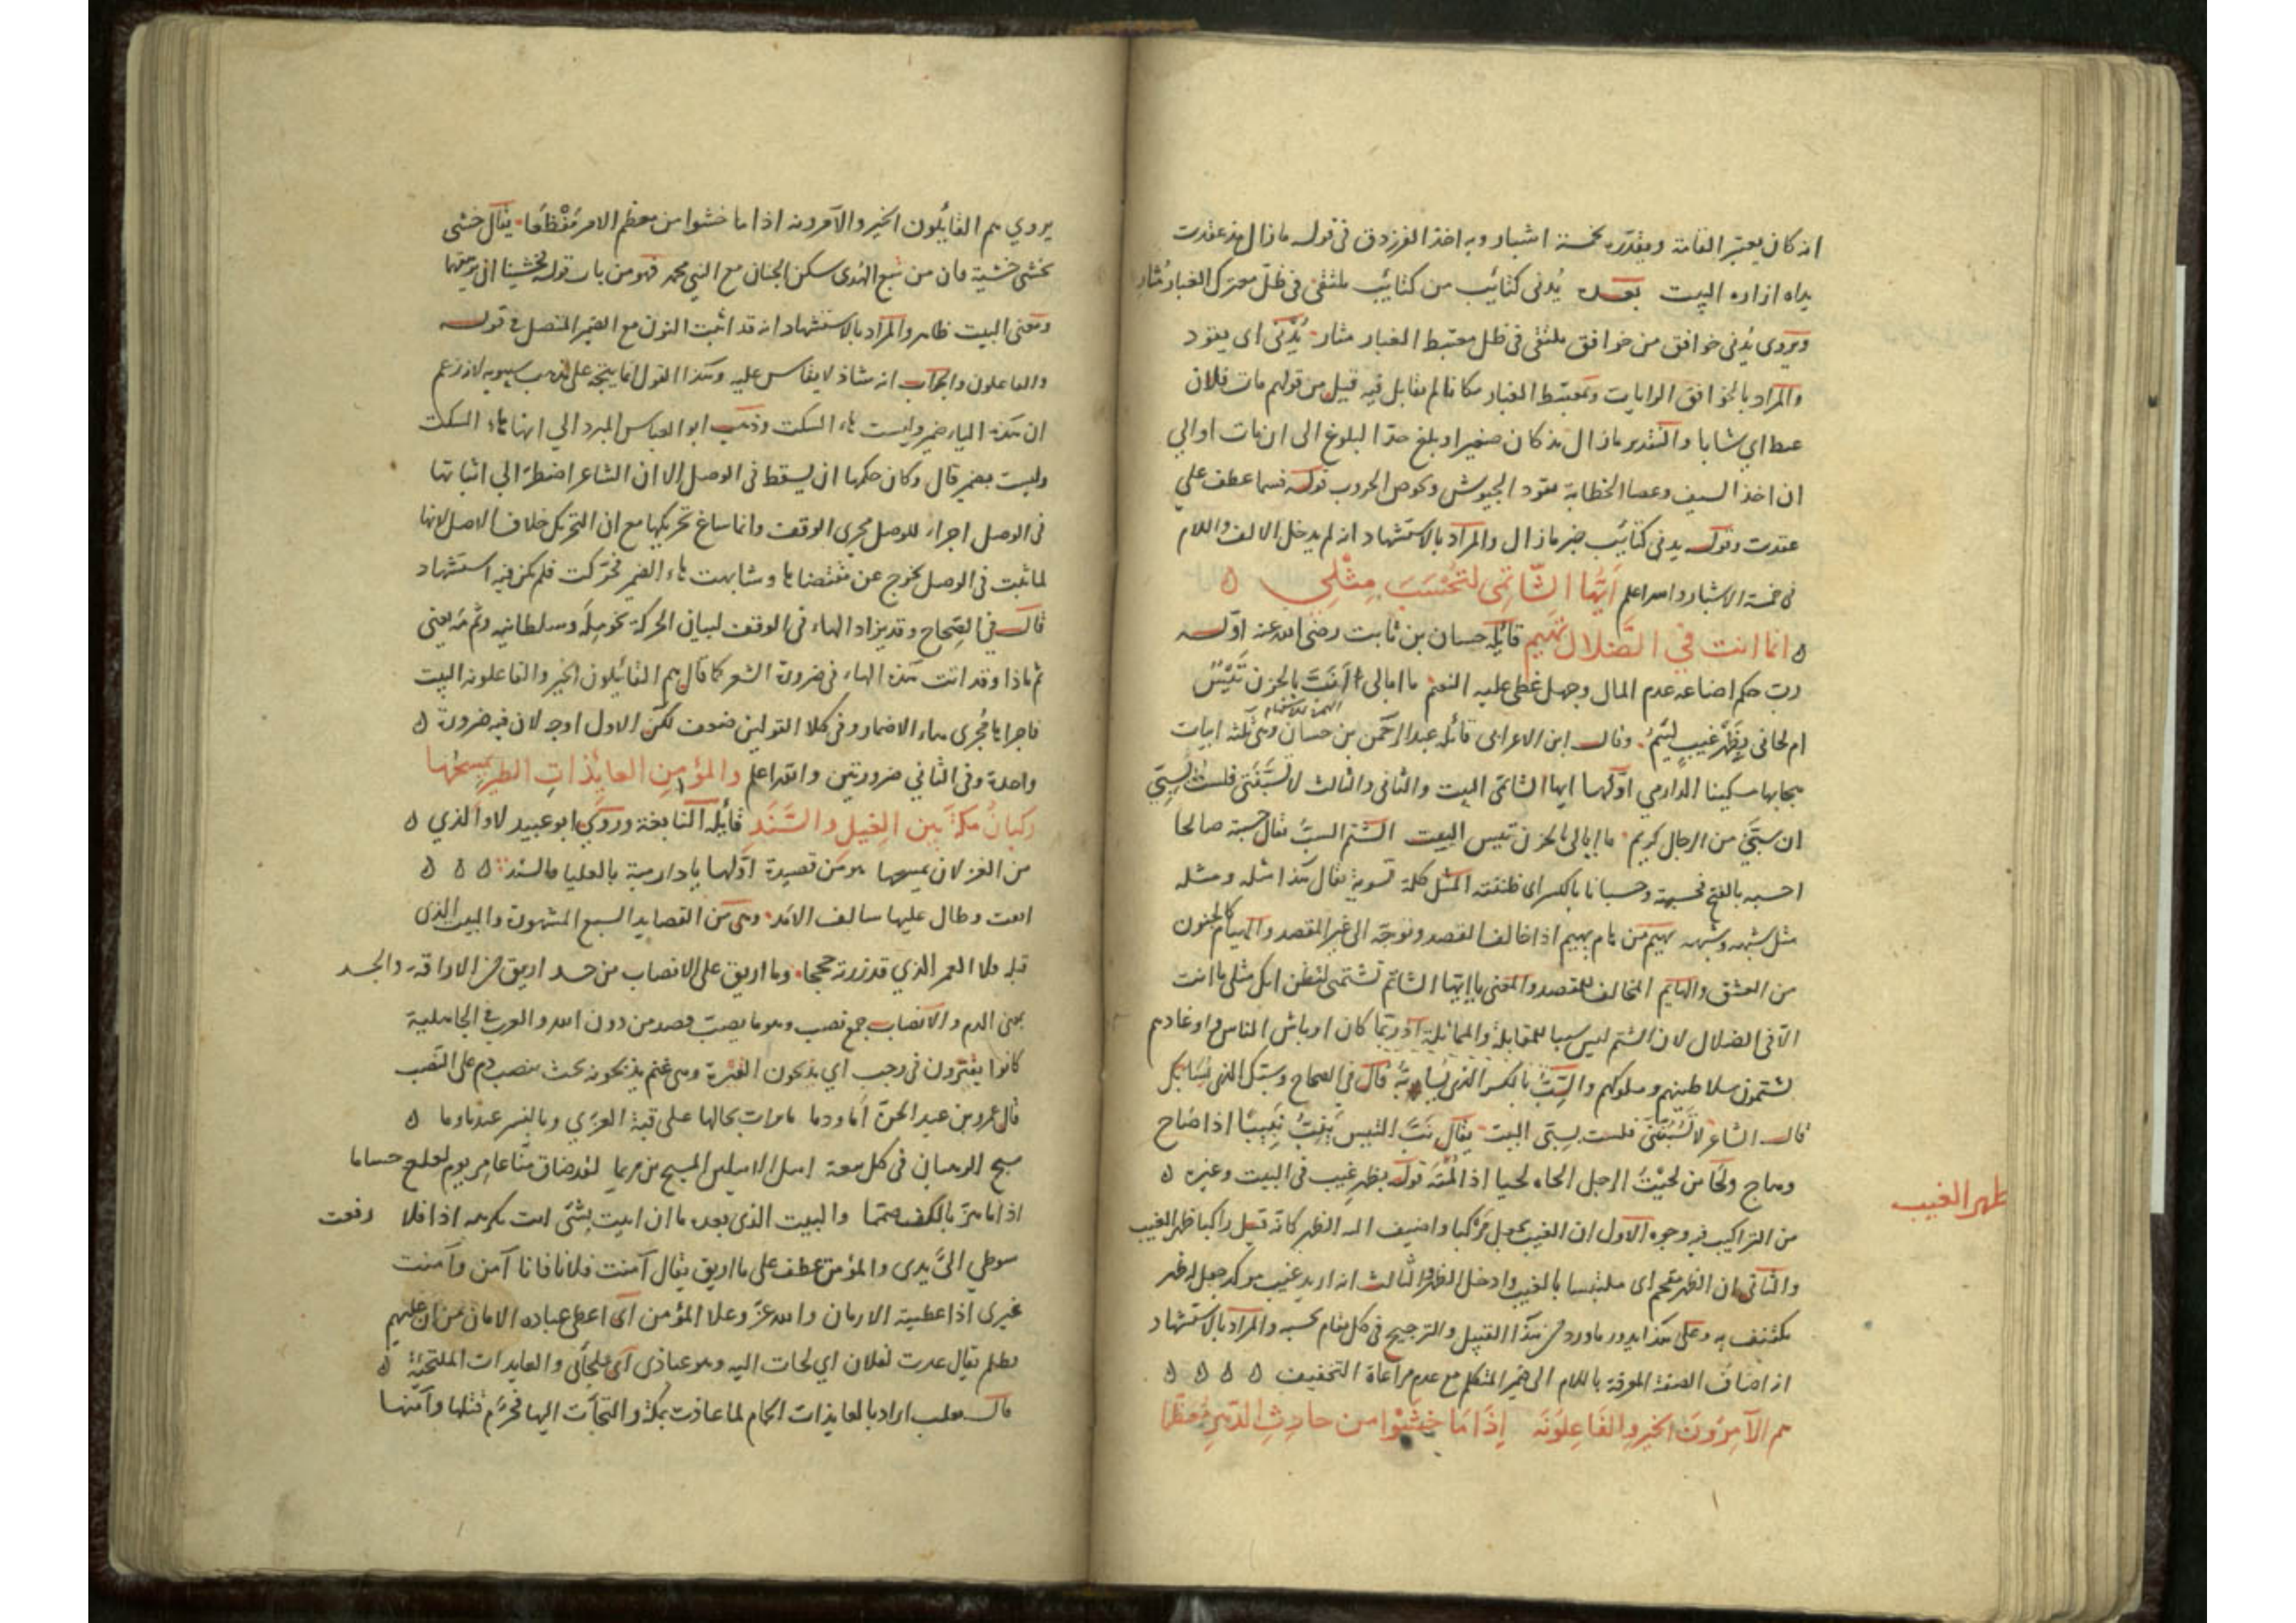 انه كان يعتبر القامة ويقدره بخمسة اشبار وبه اخذ الفرزدق فى قوله مازال مذ عقدت
يداه ازاره البيت بعده يُدنى كتائب من كتائب ملتقى فى ظل معترك الغبار مُثار
ويروى يُدنى خوافق من خوافق ملتقى فى ظل معتبط الغبار مثار يُدنى اى يقود
والمراد بالخوافق الرايات وبمعتبط الغبار مكانا لم يقابل فيه قبل من قولهم مات فلان
عبطا اي شابا والتقدير مازال مذ كان صغيرا وبلغ حدّ البلوغ الى ان مات او الي
ان اخذ السيف وعصا الخطابة يقود الجيوش ويخوض الحروب قوله فسما عطف على
عقدت وقوله يدنى كتائب خبر مازال والمراد بالاستشهاد انه لم يدخل الالف واللام
فى خمسة الاشبار والله اعلم اَيُّهَا الشّاتِمِى لتَحْسَبَ مِثْلِي
انما انت في الضلال تهيم قائله حسان بن ثابت رضى الله عنه اوله
رب حلم اضاعه عدم المال وجهل غطى عليه النعيم ما ابالى أنَبَّ بالحزن تَيْسٌ
ام لحانى بظهر غيب لئيم وقال ابن الاعرابى قائله عبد الرحمن بن حسان وهى ثلثة ابيات
الهمزة للاستفهام
هجا بها مسكينا الدارمي اوّلها ايها الشاتمى البيت والثانى والثالث لا تسبّنّنى فلست بسبّي
ان سبّي من الرجال كريم ما ابالى بالحزن تيس البيت الشتم السبّ يقال حسبته صالحا
احسبه بالفتح محسبة وحسبانا بالكسر اى ظننته المثل كلمة تسوية يقال هذا مثله ومثله
مثل شبهه وشبهه تهيم من هام يهيم اذا خالف القصد وتوجّه الى غير المقصد والهيام كالجنون
من العشق والهايم المخالف للمقصد والمعنى يا ايها الشاتم تشتمنى لتظن انك مثلى ما انت
الّا فى الضلال لان الشتم ليس سببا للمقابلة والمماثلة اذ ربما كان اوباش الناس واوغادهم
يشتمون سلاطينهم وملوكهم والسِبّ بالكسر الذى يسابّه قال فى الصحاح وسبّك الذى يسابّك
قال الشاعر لا تَسُبَّنَّنى فلست بسبّى البيت يقال نَبَّ التيس يَنِبُّ نَبِيبًا اذا صاح
وهاج ولحَا من لحيْتُ الرجل الحاه لحيا اذا لُمْتَه قوله بظهر غيب فى البيت وغيره
من التراكيب فيه وجوه الاول ان الغيب جعل مَرْكبا واضيف اليه الظهر كانه قيل راكبا ظهر الغيب
والثانى ان الظهر مقحم اى ملتبسا بالغيب وادخل الظهر والثالث انه اريد غيب موكد جعل له ظهر
مكتنف به وعلى هذا يدور ماورد من هذا القبيل والترجيح فى كل مقام بحسبه والمراد بالاستشهاد
انه اضاف الصفة المعرفة باللام الى ضمير المتكلم مع عدم مراعاة التخفيف
هم الآمِرُونَ الخير والفَاعِلُونَهُ اِذَا مَا خَشَوْا من حادِثِ الدَهْرِ مُعظَمَا
ظهر الغيب
يروي هم القايلون الخير والآمرونه اذا ما خشوا من معظم الامر مُفْظَعًا يقال خشى
يخشى خشية فان من تبع الهُدى سكن الجنان مع النبي محمد فهو من باب قوله فخشينا ان يرهقهما
ومعنى البيت ظاهر والمراد بالاستشهاد انه قد اثبت النون مع الضمير المتصل فى قوله
والفاعلونه والجواب انه شاذ لا يقاس عليه وهذا القول انما يتجه على مذهب سيبويه لانه زعم
ان هذه الهاء ضمير وليست هاء السكت وذهب ابو العباس المبرد الي انها هاء السكت
وليست بضمير قال وكان حكمها ان يسقط فى الوصل الا ان الشاعر اضطرّ الي اثباتها
فى الوصل اجراء للوصل مجرى الوقف وانما ساغ تحريكها مع ان التحريك خلاف الاصل لانها
لما ثبت فى الوصل بخرج عن مقتضاها وشابهت هاء الضمير فحرّكت فلم يكن فيه استشهاد
قال في الصّحاح وقد يزاد الهاء فى الوقف لبيان الحركة نحو لِمَهْ وسلطانيه وثَمّ مَهْ يعنى
ثم ماذا وقد اتت هذه الهاء فى ضرورة الشعر كما قال هم القائلون الخير والفاعلونه البيت
فاجراها مُجْرى هاء الاضمار وفى كلا القولين ضعف لكن الاول اوجه لان فيه ضرورة
واحدة وفى الثاني ضرورتين والله اعلم والمؤمن العايذات الطير يمسحُها
ركبانُ مكةَ بين الغيل والسَّنَدِ قائله النابغة وروي ابو عبيد لا والذي
من الغزلان يمسحها وهو من قصيدة اوّلها يا دار مية بالعليا فالسند
اقوت وطال عليها سالف الامد وهى من القصايد السبع المشهورة والبيت الذى
قبله فلا لعمر الذي قد زرته حججا وما اريق على الانصاب من جسد اريق من الاراقة والجسد
بمعنى الدم والانصاب جمع نصب وهو ما نصب فعبد من دون الله والعرب فى الجاهلية
كانوا يعترون فى رجب اي يذبحون العتيرة وهى غنم يذبحونه بحيث ينصب دم على النصب
قال عمرو بن عبد الجنّ أما ودما مايرات تخالها على قنة العزّي وبالنسر عندما وما
سبح الرهبان فى كل بيعة ابيل الابيلين المسيح بن مريما لقد ضاق منا عامر يوم لعلع حساما
اذا ما هزّ بالكف صمّما والبيت الذى بعده ما ان اتيت بشئ انت تكرهه اذا فلا رفعت
سوطي اليّ يدى والمؤمن عطف على ما اريق يقال آمنت فلانا فانا آمن وآمنت
غيرى اذا اعطيته الامان والله عزّ وعلا المؤمن اى اعطى عباده الامان من ان
يظلم يقال عذت بفلان اي لجأت اليه وهو عياذى اى ملجأى والعايذات الملتجئة
قال ثعلب اراد بالعايذات الحمام لما عاذت بمكة والتجأت اليها فحرّم قتلها وآمنها